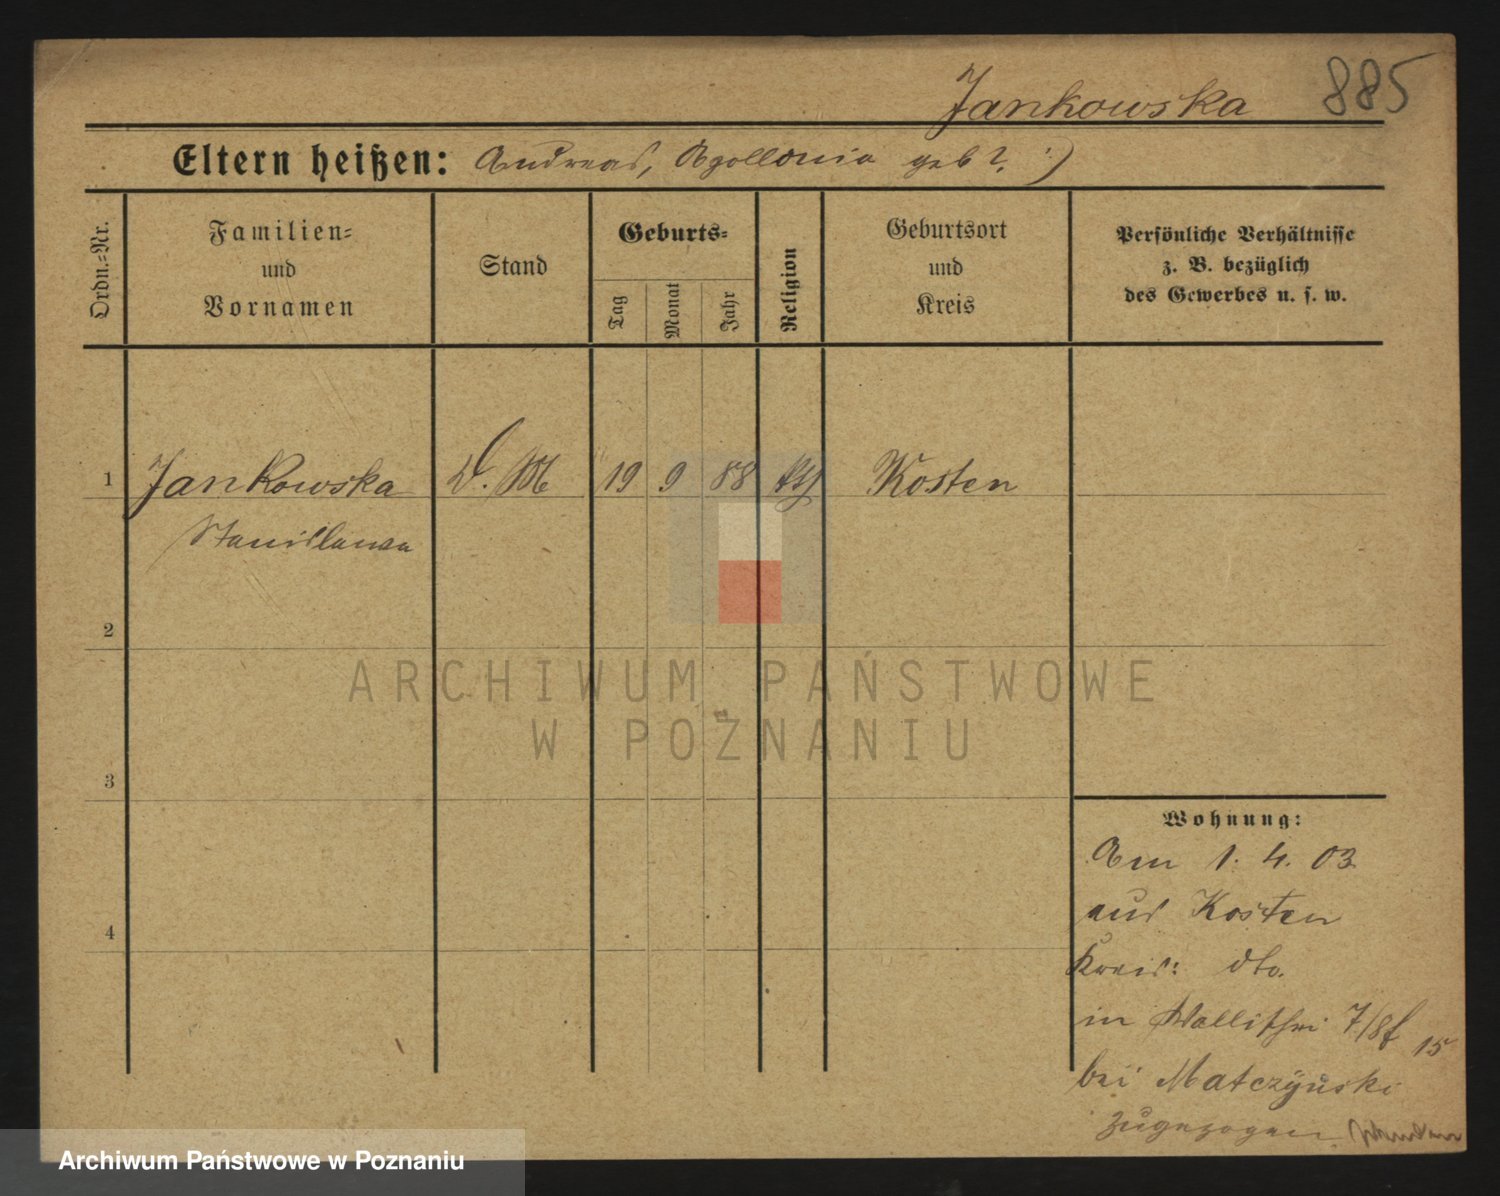 Jankowska 885
Eltern heißen: Andreas, Apollonia geb ?. :)
Ordn.=Nr.
Familien=
und
Vornamen
Stand
Geburts=
Tag
Monat
Jahr
Religion
Geburtsort
und
Kreis
Persönliche Verhältnisse
z. B. bezüglich
des Gewerbes u. s. w.
1 Jankowska D. M 19 9 88 kth Kosten
Stanislawa
2
3
4
Wohnung:
Am 1. 4. 03
aus Kosten
Kreis: dto.
in Wallischei 7/8 15
bei Matczyński
zugezogen
ARCHIWUM PAŃSTWOWE
W POZNANIU
Archiwum Państwowe w Poznaniu